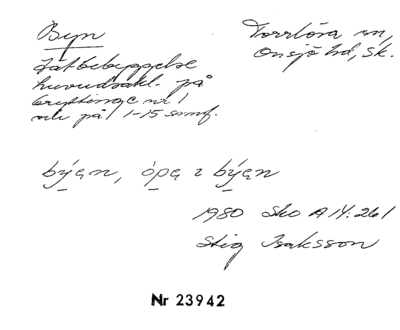 Byn
Torrlösa sn,
Onsjö hd, Sk.
Tätbebyggelse
huvudsakl. på
Gryttinge nr 1
och på 1-15 samf.
býa̱n, ópa̱ i býa̱n
1980 Sko A 14:261
Stig Isaksson
Nr 23942